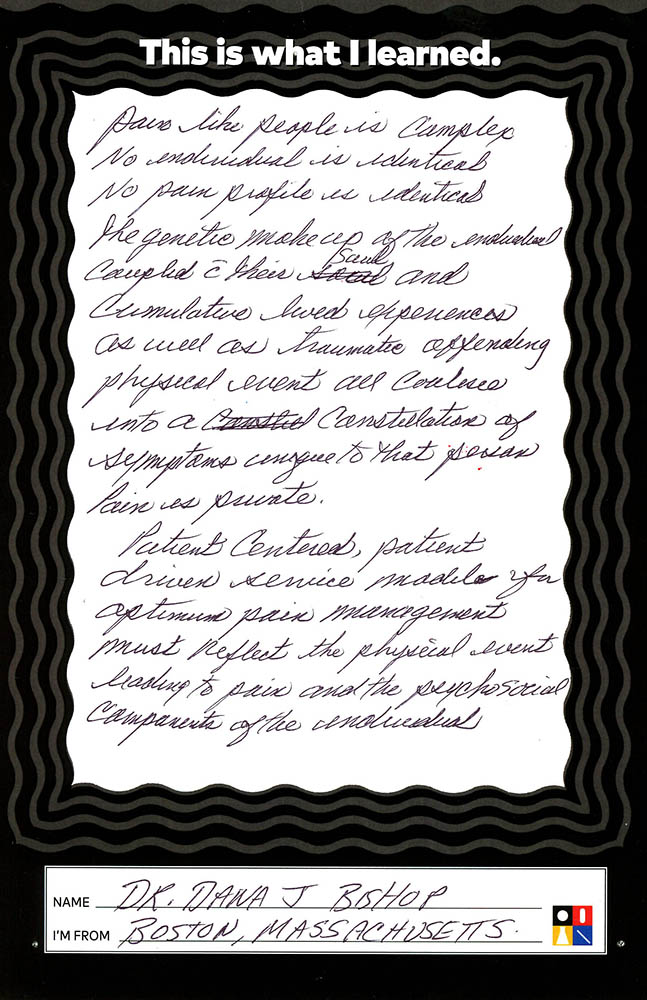 This is what I learned.
Pain like people is Complex
No individual is identical
No pain profile is identical
The genetic makeup of the individual
Coupled c̄ their and
Cumulative lived experiences
as well as traumatic offending
physical event all Coalesce
into a Constellation of
symptoms unique to that person
Pain is private.
Patient Centered, patient
driven service models for
optimum pain management
must reflect the physical event
leading to pain and the psychosocial
Components of the individual
NAME DR. DANA J BISHOP
I'M FROM BOSTON, MASSACHUSETTS.